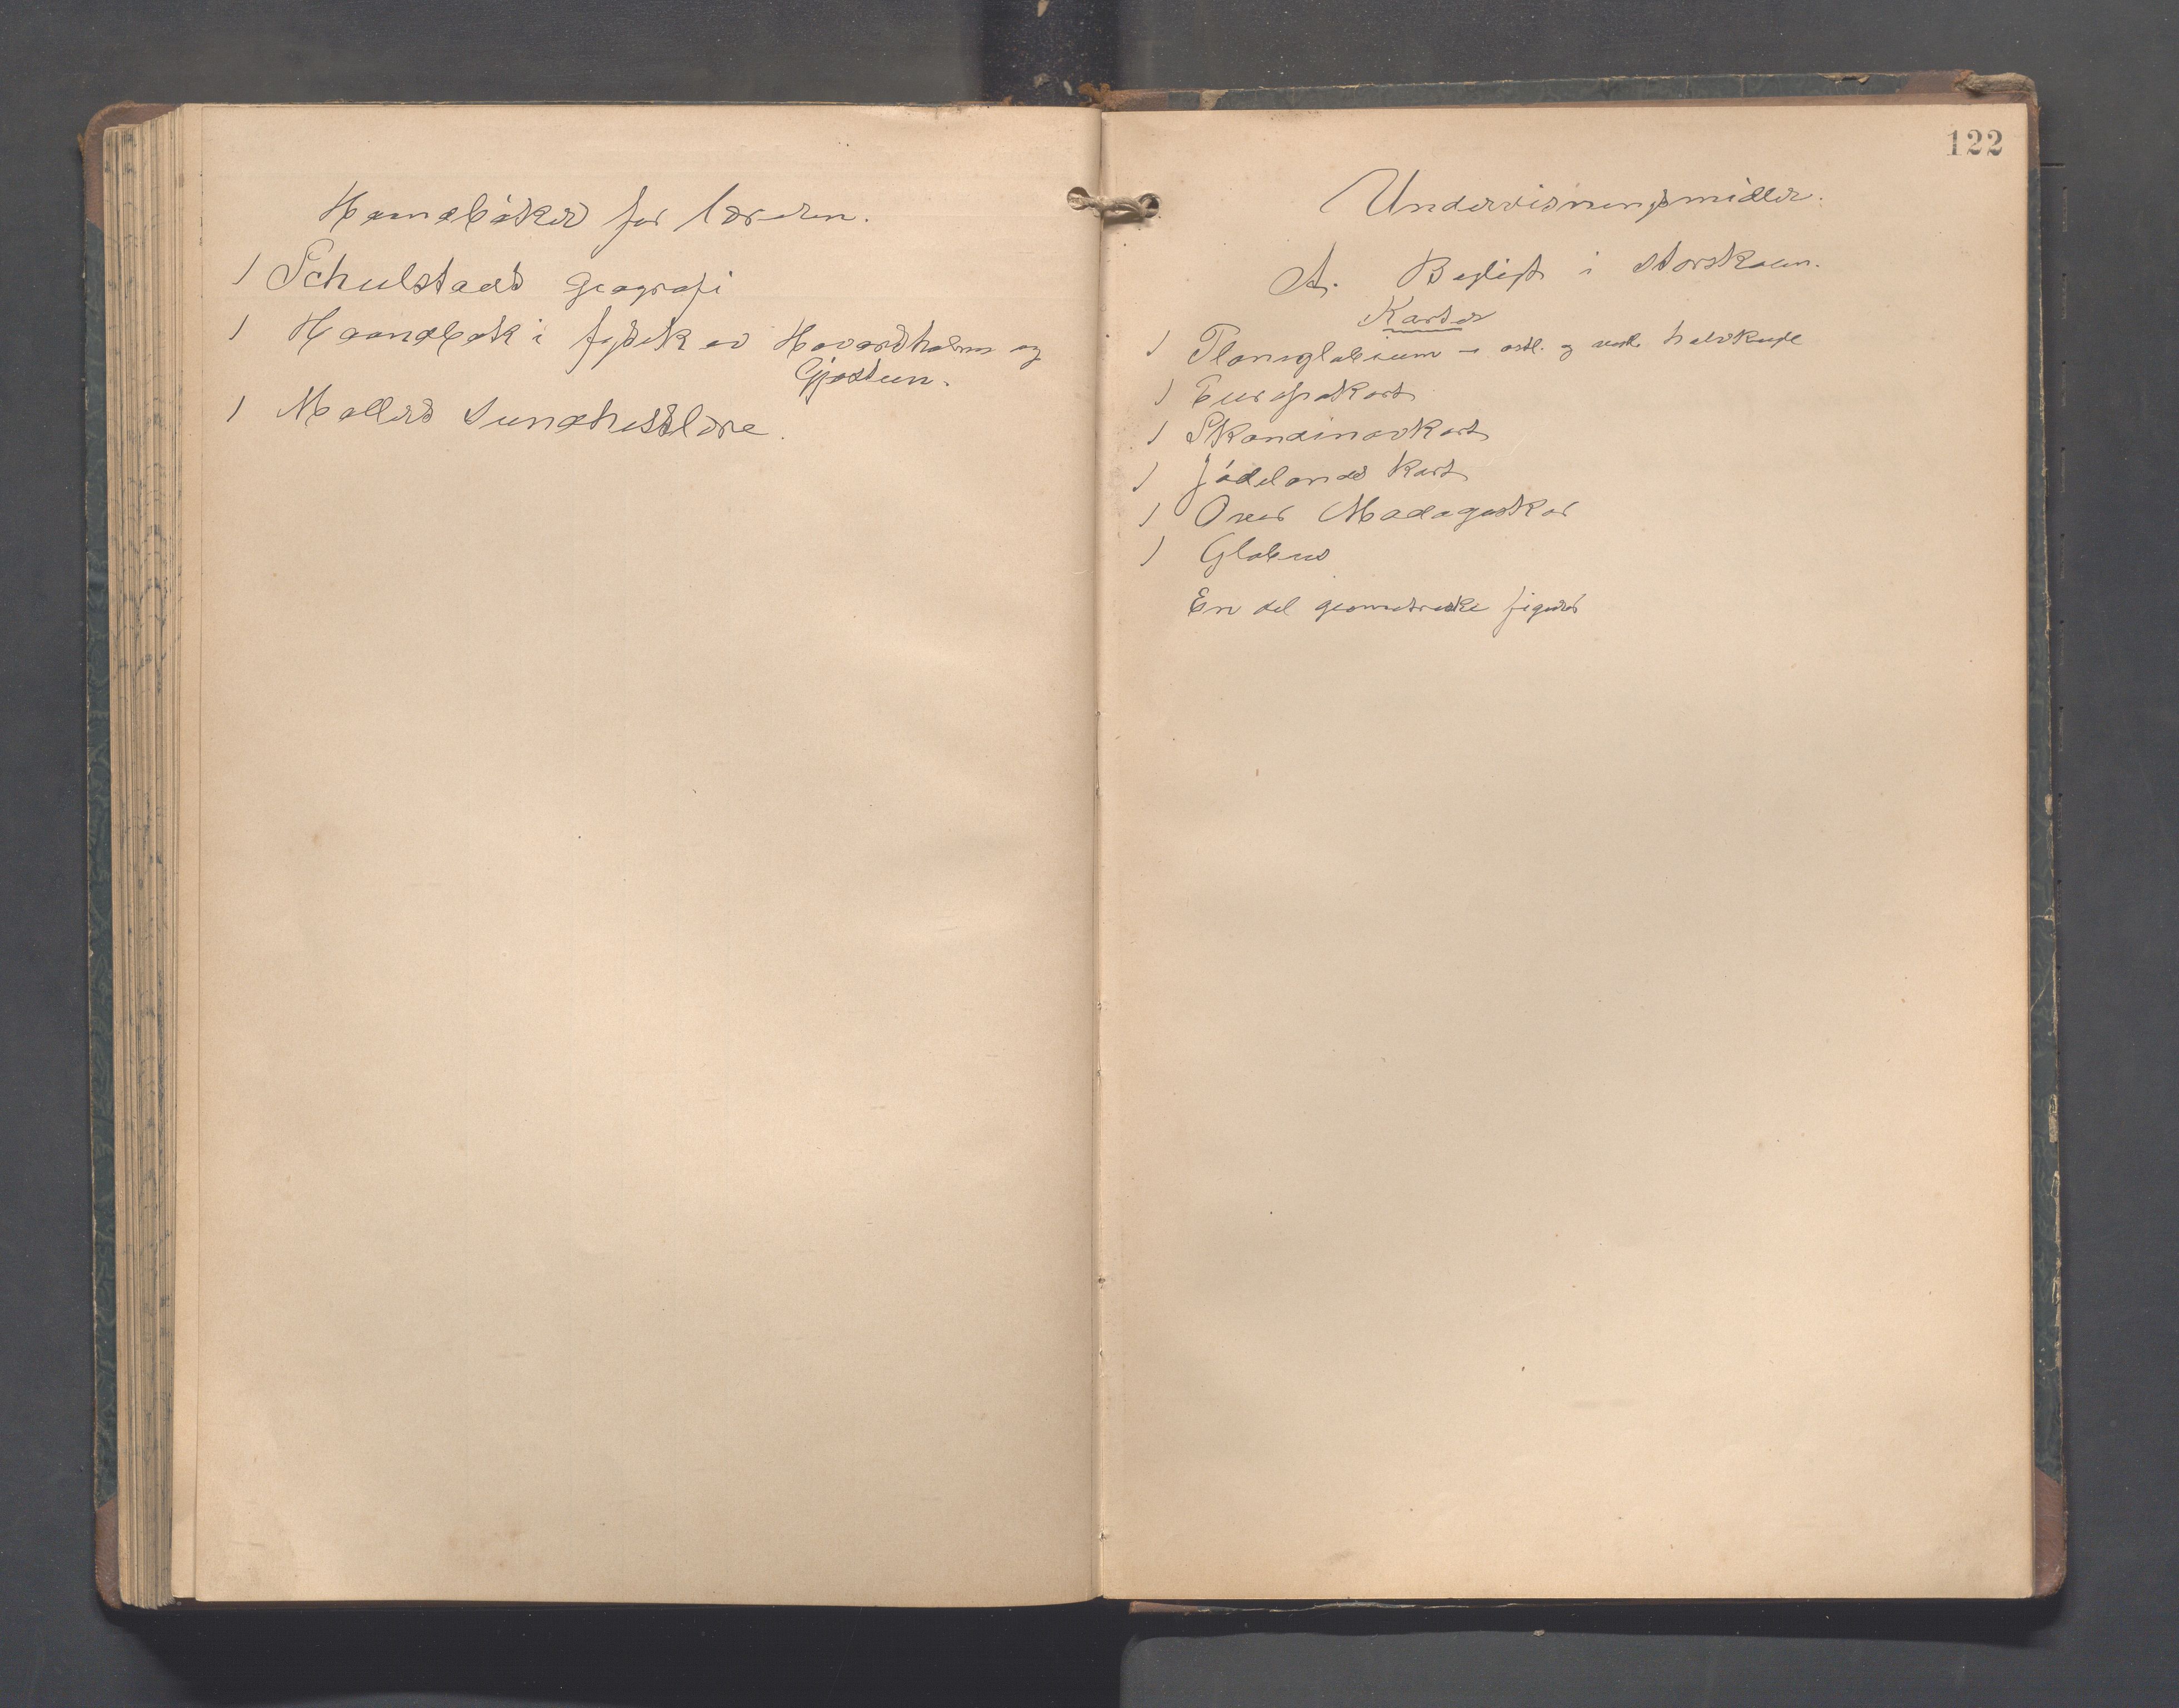 Haandbøker for læreren.
1 Schulstads geografi
1 Haandbok i fysik av Havardholm og
Gjøstein.
1 Møllers sundhetslære.
122
Undervisningsmidler.
A. Beglept i storskolen.
Karter
1 Planiglobium – østl. og vestl. halvkugle
1 Europakart
1 Skandinavkart
1 Jødelands kart
1 Over Madagaskar
1 Globus
En del geometriske figurer